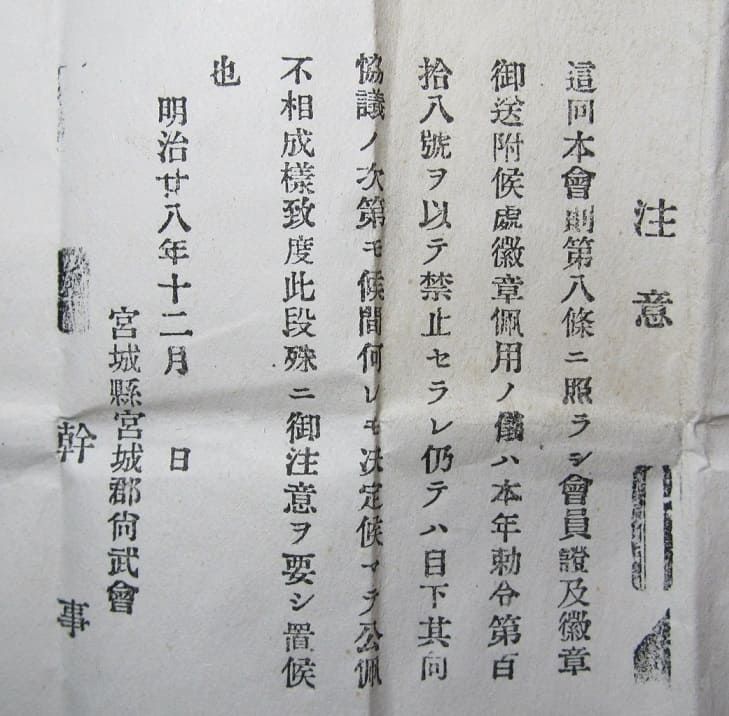 注意
這回本會則第八條ニ照ラシ會員證及徽章
御送附候處徽章佩用ノ儀ハ本年勅令第百
拾八號ヲ以テ禁止セラレ仍テハ目下其向
恊議ノ次第モ候間何レモ决定候マテ公佩
不相成樣致度此段殊ニ御注意ヲ要シ置候
也
明治廿八年十二月 日
宮城縣宮城郡尙武會
幹事